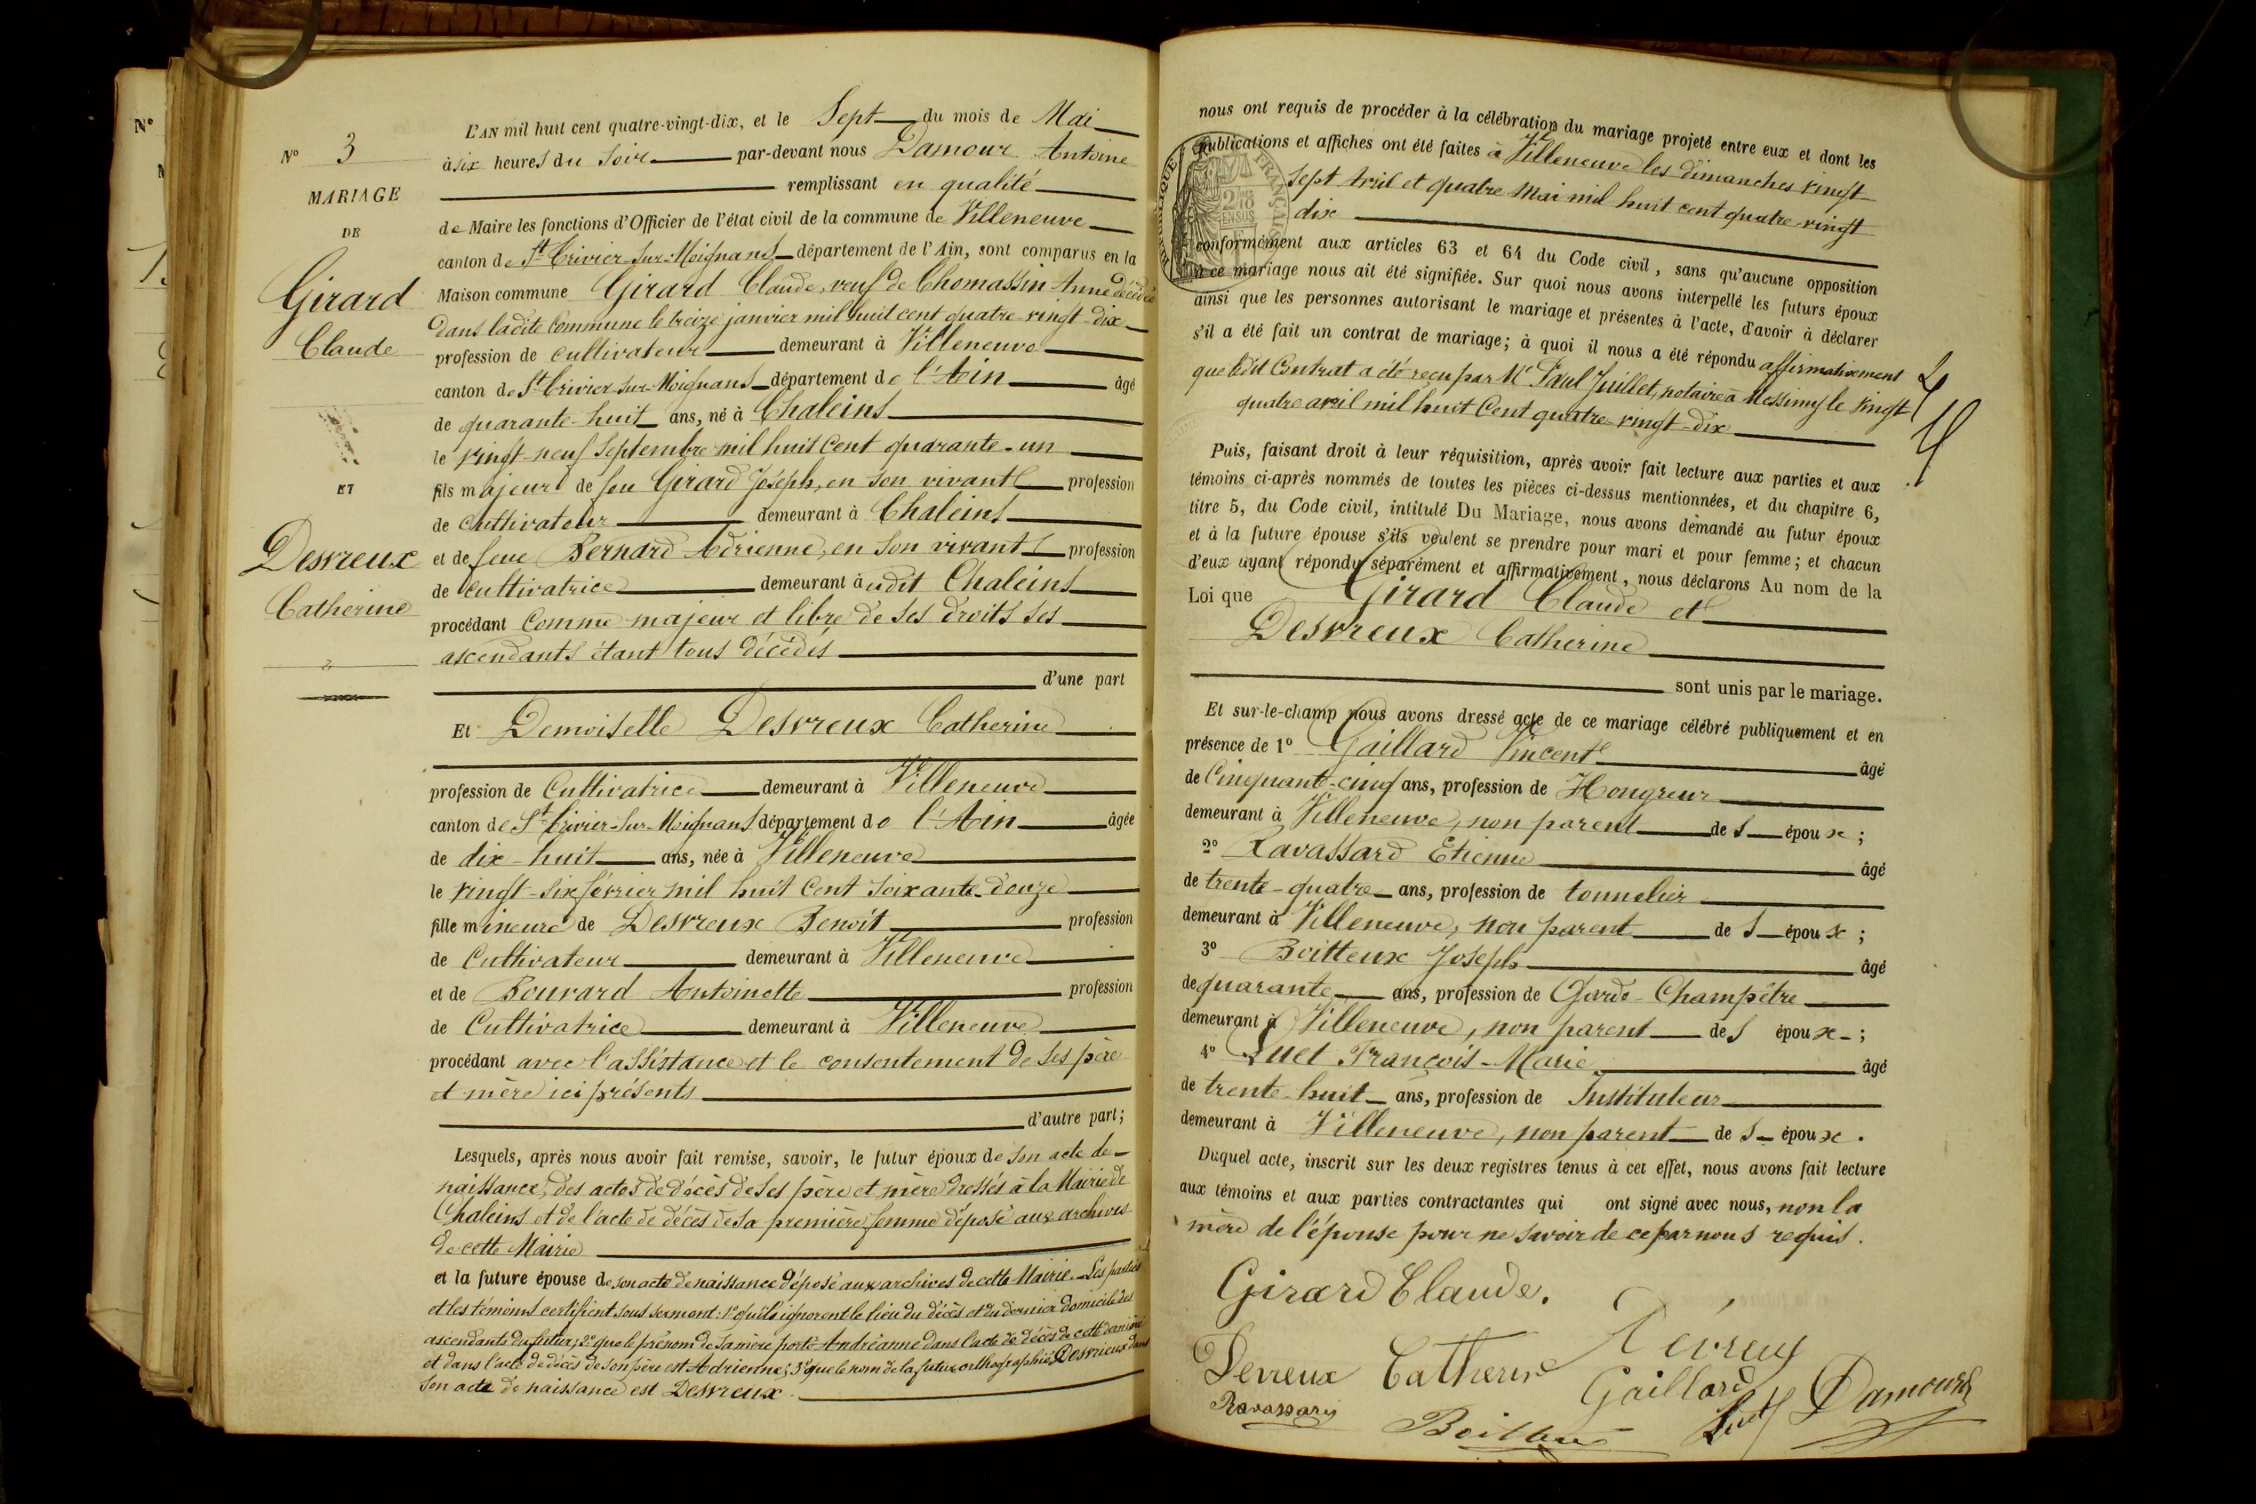 N°
N° 3
MARIAGE
DE
Girard
Claude
ET
Desvreux
Catherine
L'AN mil huit cent quatre-vingt-dix, et le Sept du mois de Mai
à six heures du soir par-devant nous Damour Antoine
remplissant en qualité
de Maire les fonctions d'Officier de l'état civil de la commune de Villeneuve
canton de St Trivier-sur-Moignans département de l'Ain, sont comparus en la
Maison commune Girard Claude, veuf de Chomassin Anne décédée
dans ladite Commune le treize janvier mil huit cent quatre-vingt-dix
profession de cultivateur demeurant à Villeneuve
canton de St Trivier-sur-Moignans département de l'Ain âgé
de quarante-huit ans, né à Chaleins
le vingt-neuf Septembre mil huit cent quarante-un
fils majeur de feu Girard Joséph, en son vivant profession
de cultivateur demeurant à Chaleins
et de feue Bernard Adrienne, en son vivant profession
de cultivatrice demeurant à udit Chaleins
procédant comme majeur et libre de ses droits ses
ascendants étant tous décédés
d'une part
Et Demoiselle Desvreux Catherine
profession de Cultivatrice demeurant à Villeneuve
canton de St Trivier-sur-Moignans département de l'Ain âgée
de dix-huit ans, née à Villeneuve
le vingt-six février mil huit cent soixante-douze
fille mineure de Desvreux Benoît profession
de Cultivateur demeurant à Villeneuve
et de Bouvard Antoinette profession
de Cultivatrice demeurant à Villeneuve
procédant avec l'assistance et le consentement de ses père
et mère ici présents
d'autre part;
Lesquels, après nous avoir fait remise, savoir, le futur époux de son acte de
naissance, des actes de décès de ses père et mère dressés à la Mairie de
Chaleins et de l'acte de décès de sa première femme déposé aux archives
de cette Mairie
et la future épouse de son acte de naissance déposé aux archives de cette Mairie. Les parties
et les témoins certifient sous serment: 1° qu'ils ignorent le lieu du décès et du dernier domicile des
ascendants du futur; 2° que le prénom de sa mère porté Andréanne dans l'acte de décès de cette dernière
et dans l'acte de décès de son père est Adrienne; 3° que le nom de la future orthographié Desvrieux dans
son acte de naissance est Desvreux.
nous ont requis de procéder à la célébration du mariage projeté entre eux et dont les
publications et affiches ont été faites à Villeneuve les dimanches vingt
sept Avril et quatre Mai mil huit cent quatre-vingt
dix
conformément aux articles 63 et 64 du Code civil, sans qu'aucune opposition
à ce mariage nous ait été signifiée. Sur quoi nous avons interpellé les futurs époux
ainsi que les personnes autorisant le mariage et présentes à l'acte, d'avoir à déclarer
s'il a été fait un contrat de mariage; à quoi il nous a été répondu affirmativement
que ledit Contrat a été reçu par Me Paul Juillet, notaire à Messimy le vingt
quatre avril mil huit Cent quatre-vingt-dix
Puis, faisant droit à leur réquisition, après avoir fait lecture aux parties et aux
témoins ci-après nommés de toutes les pièces ci-dessus mentionnées, et du chapitre 6,
titre 5, du Code civil, intitulé Du Mariage, nous avons demandé au futur époux
et à la future épouse s'ils veulent se prendre pour mari et pour femme; et chacun
d'eux ayant répondu séparément et affirmativement, nous déclarons Au nom de la
Loi que Girard Claude et
Desvreux Catherine
sont unis par le mariage.
Et sur-le-champ nous avons dressé acte de ce mariage célébré publiquement et en
présence de 1° Gaillard Vincent âgé
de Cinquante-cinq ans, profession de Hongreur
demeurant à Villeneuve, non parent de s époux;
2° Ravassard Etienne âgé
de trente-quatre ans, profession de tonnelier
demeurant à Villeneuve, non parent de s époux;
3° Boitteux Joseph âgé
de quarante ans, profession de Garde-Champêtre
demeurant à Villeneuve, non parent de s époux;
4° Luet François-Marie âgé
de trente-huit ans, profession de Instituteur
demeurant à Villeneuve, non parent de s époux.
Duquel acte, inscrit sur les deux registres tenus à cet effet, nous avons fait lecture
aux témoins et aux parties contractantes qui ont signé avec nous, non la
mère de l'épouse pour ne savoir de ce par nous requis.
Girard Claude.
Devreux Catherine
Gaillard
Damour
Ravassard
Luet